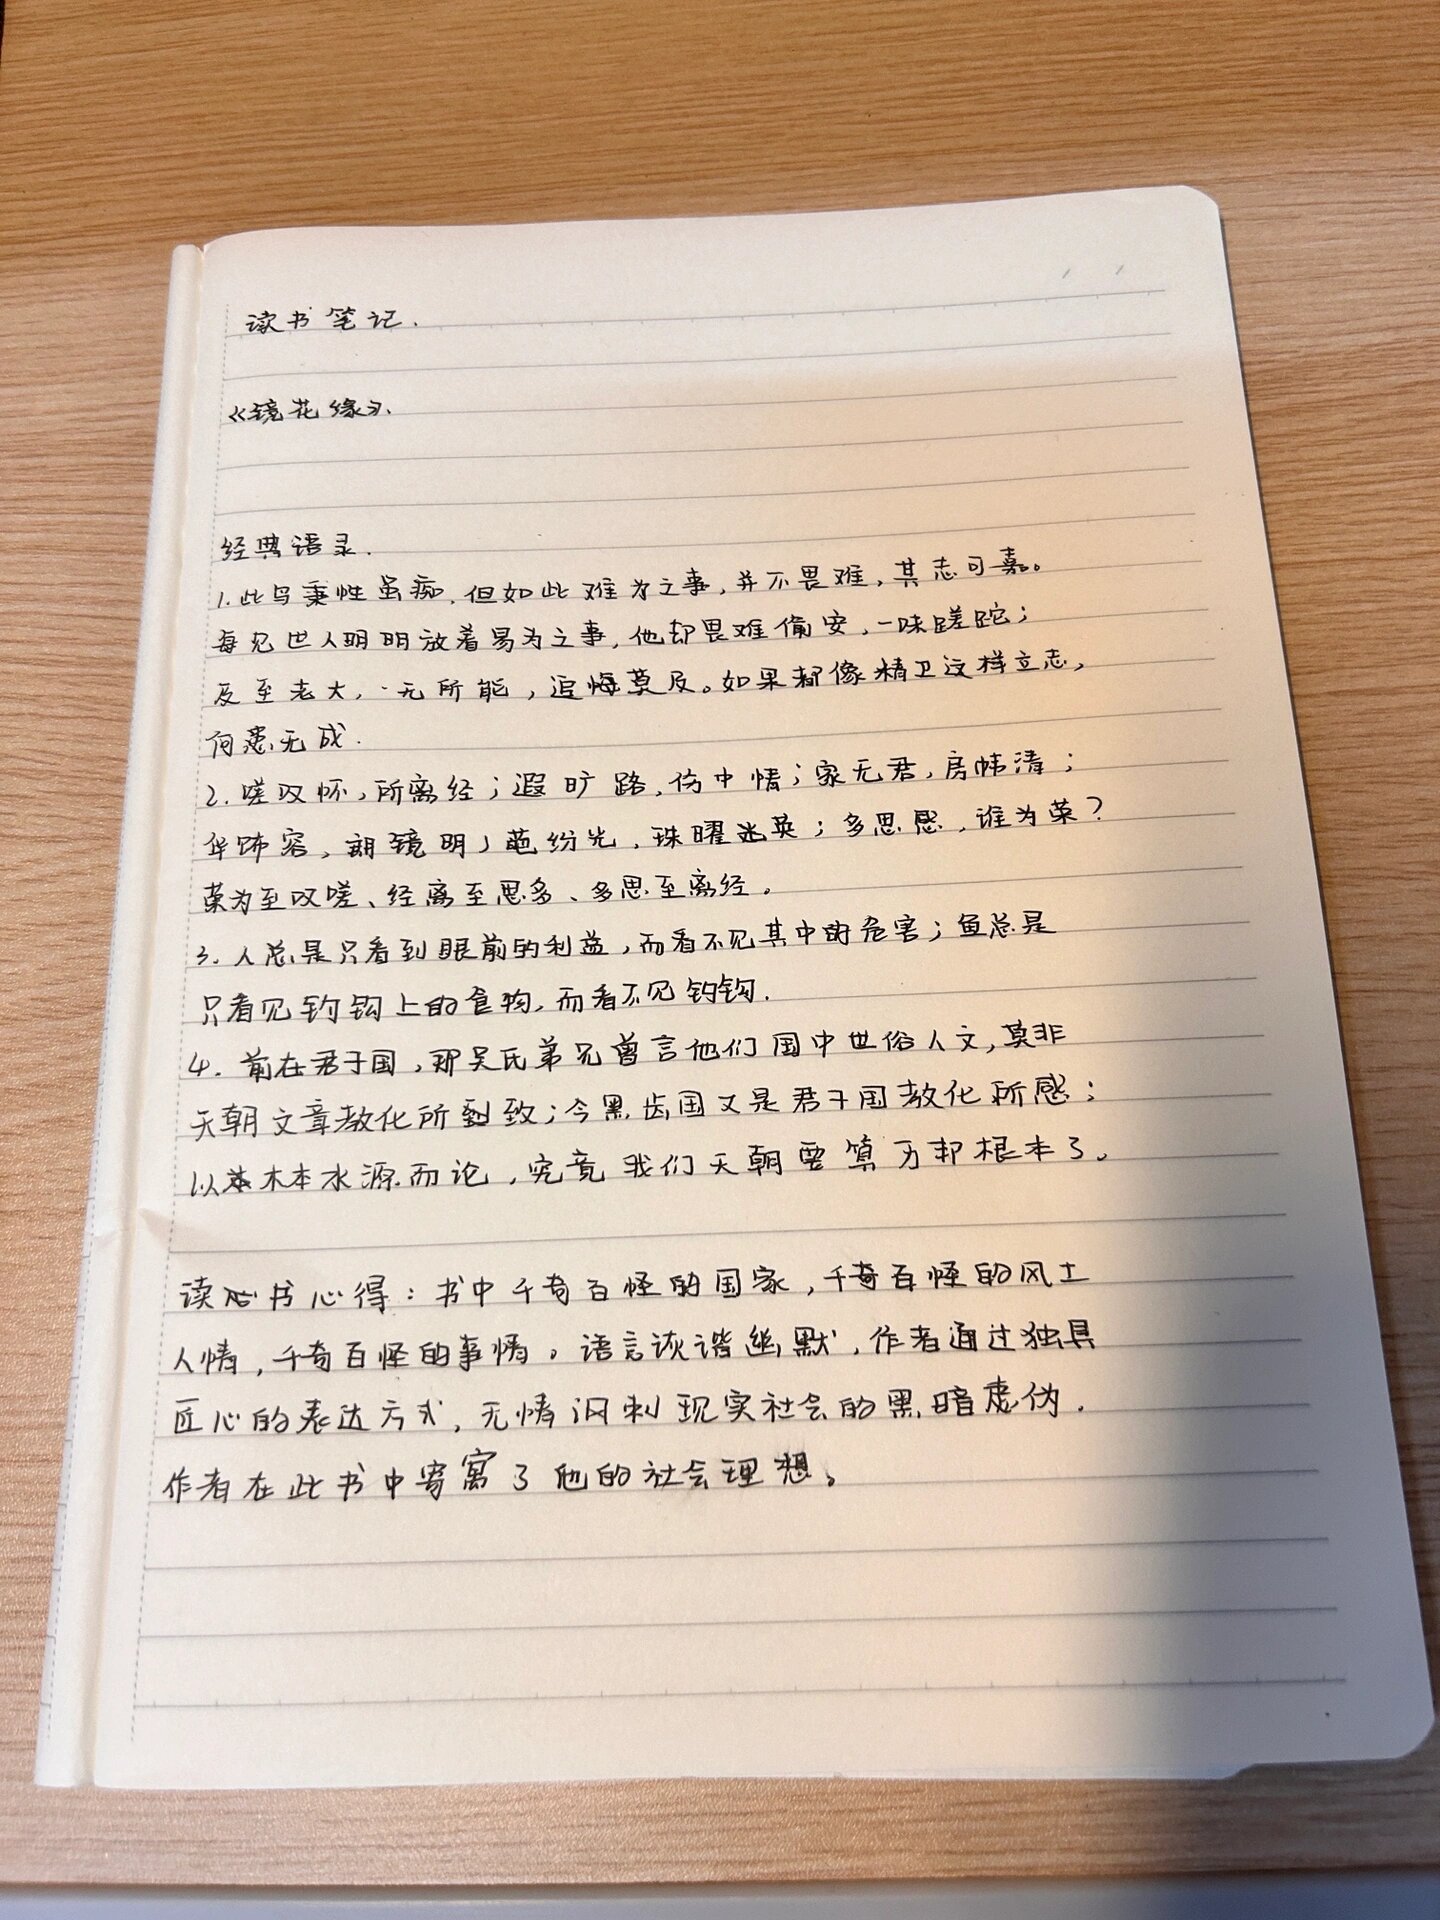 读书笔记.
《镜花缘》.
经典语录.
1.此鸟秉性虽痴,但如此难为之事,并不畏难,其志可嘉。
每见世人明明放着易为之事,他却畏难偷安,一味蹉跎;
及至老大,一无所能,追悔莫及。如果都像精卫这样立志,
何患无成.
2.嗟叹怀,所离经;遐旷路,伤中情;家无君,房帏清;
华饰容,朗镜明;葩纷光,珠曜英;多思感,谁为荣?
荣为至叹嗟、经离至思多、多思至离经。
3.人总是只看到眼前的利益,而看不见其中的危害;鱼总是
只看见钓钩上的食物,而看不见钓钩.
4.前在君子国,那吴氏弟兄曾言他们国中世俗人文,莫非
天朝文章教化所到致;今黑齿国又是君子国教化所感;
以木本水源而论,究竟我们天朝要算万邦根本了。
读书心得:书中千奇百怪的国家,千奇百怪的风土
人情,千奇百怪的事情。语言诙谐幽默,作者通过独具
匠心的表达方式,无情讽刺现实社会的黑暗虚伪.
作者在此书中寄寓了他的社会理想。